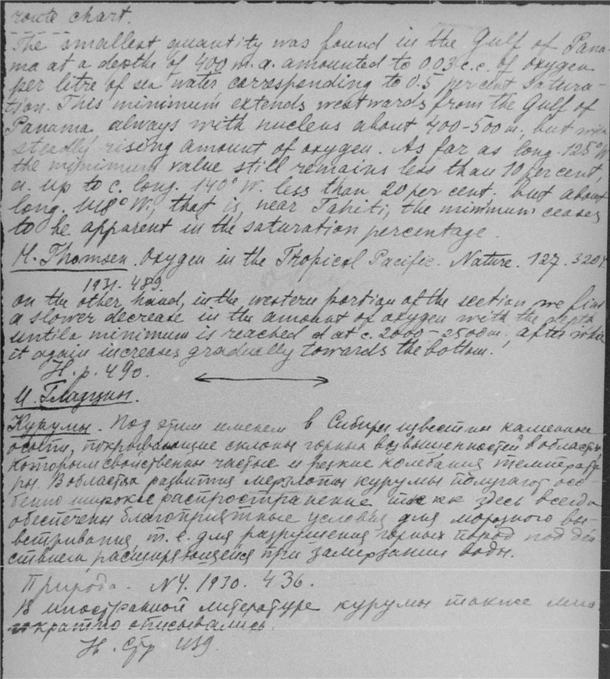 route chart.
The smallest quantity was found in the Gulf of Pana-
ma at a depths of 400 m. a. amounted to 0.03 c.c. of oxygen
per litre of sea water corresponding to 0.5 per cent satura-
tion. This minimum extends westwards from the Gulf of
Panama always with nucleus about 400-500 m, but with
steadily rising amount of oxygen. As far as long. 125° W
the minimum value still remains less than 10 per cent,
a. up to c. long. 140° W. less than 20 per cent. but about
long. 148° W, that is, near Tahiti, the minimum ceases
to be apparent in the saturation percentage.
H. Thomsen. Oxygen in the Tropical Pacific. Nature. 127. 3204
1931. 489.
on the other hand, in the western portion of the section we find
a slower decrease in the amount of oxygen with the depth
until a minimum is reached at c. 2000-2500 m. after which
it again increases gradually towards the bottom.
Н. p. 490.
И. Гладцин.
Курумы. Под этим именем в Сибири известны каменные
осыпи, покрывающие склоны горных возвышенностей в областях
которым свойственны частые и резкие колебания температу-
ры. В областях развития мерзлоты курумы получают осо-
бенно широкое распространение так как здесь всегда
обеспечены благоприятные условия для морозного вы-
ветривания т. е. для разрушения горных пород под дей-
ствием расширяющейся при замерзании воды.
Природа. N4. 1930. 436.
В иностранной литературе курумы также мно-
гократно описывались.
Н. Стр 439.